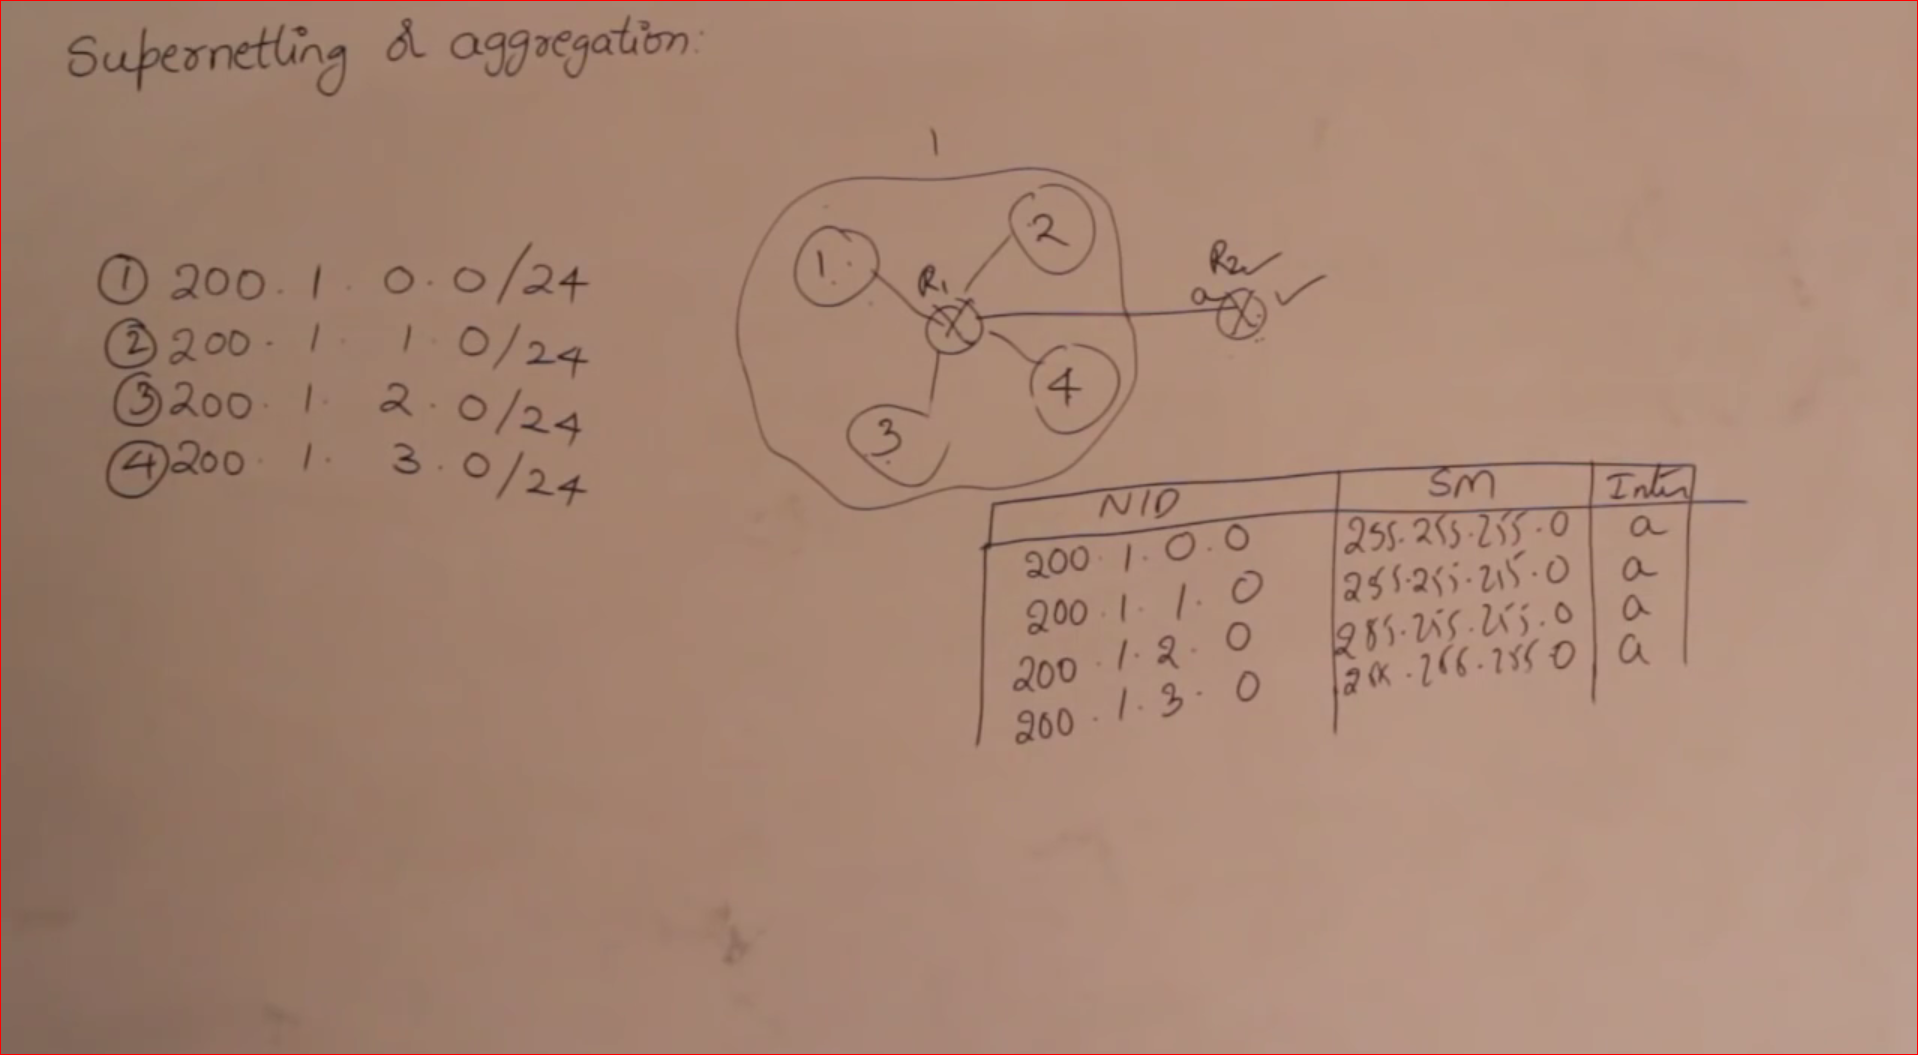 Supernetting & aggregation:
① 200. 1. 0. 0/24
② 200. 1. 1. 0/24
③ 200. 1. 2. 0/24
④ 200. 1. 3. 0/24
1
1
2
R1
R2
a
4
3
NID SM Inter
200. 1. 0. 0 255.255.255.0 a
200. 1. 1. 0 255.255.255.0 a
200. 1. 2. 0 255.255.255.0 a
200. 1. 3. 0 255.255.255.0 a